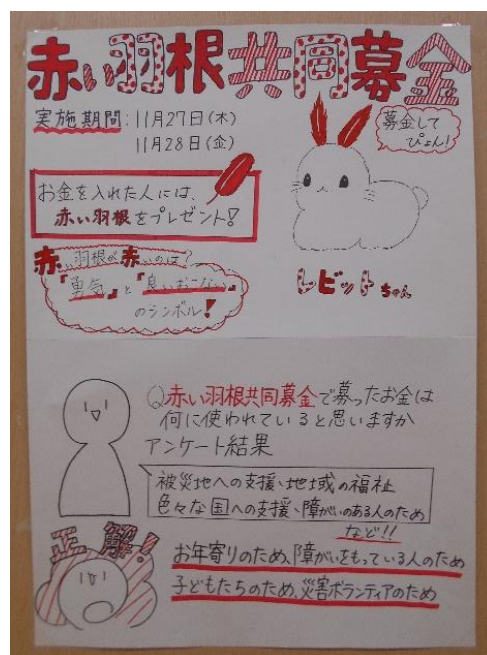 赤い羽根共同募金
実施期間:11月27日(木)
11月28日(金)
募金して
ぴょん!
お金を入れた人には、
赤い羽根をプレゼント!
赤い羽根が赤いのは?
「勇気」と「良いおこない」
のシンボル!
レビットちゃん
Q赤い羽根共同募金で募ったお金は
何に使われていると思いますか
アンケート結果
被災地への支援、地域の福祉
色々な国への支援、障がいのある人のため
など!!
正解!
お年寄りのため、障がいをもっている人のため
子どもたちのため、災害ボランティアのため